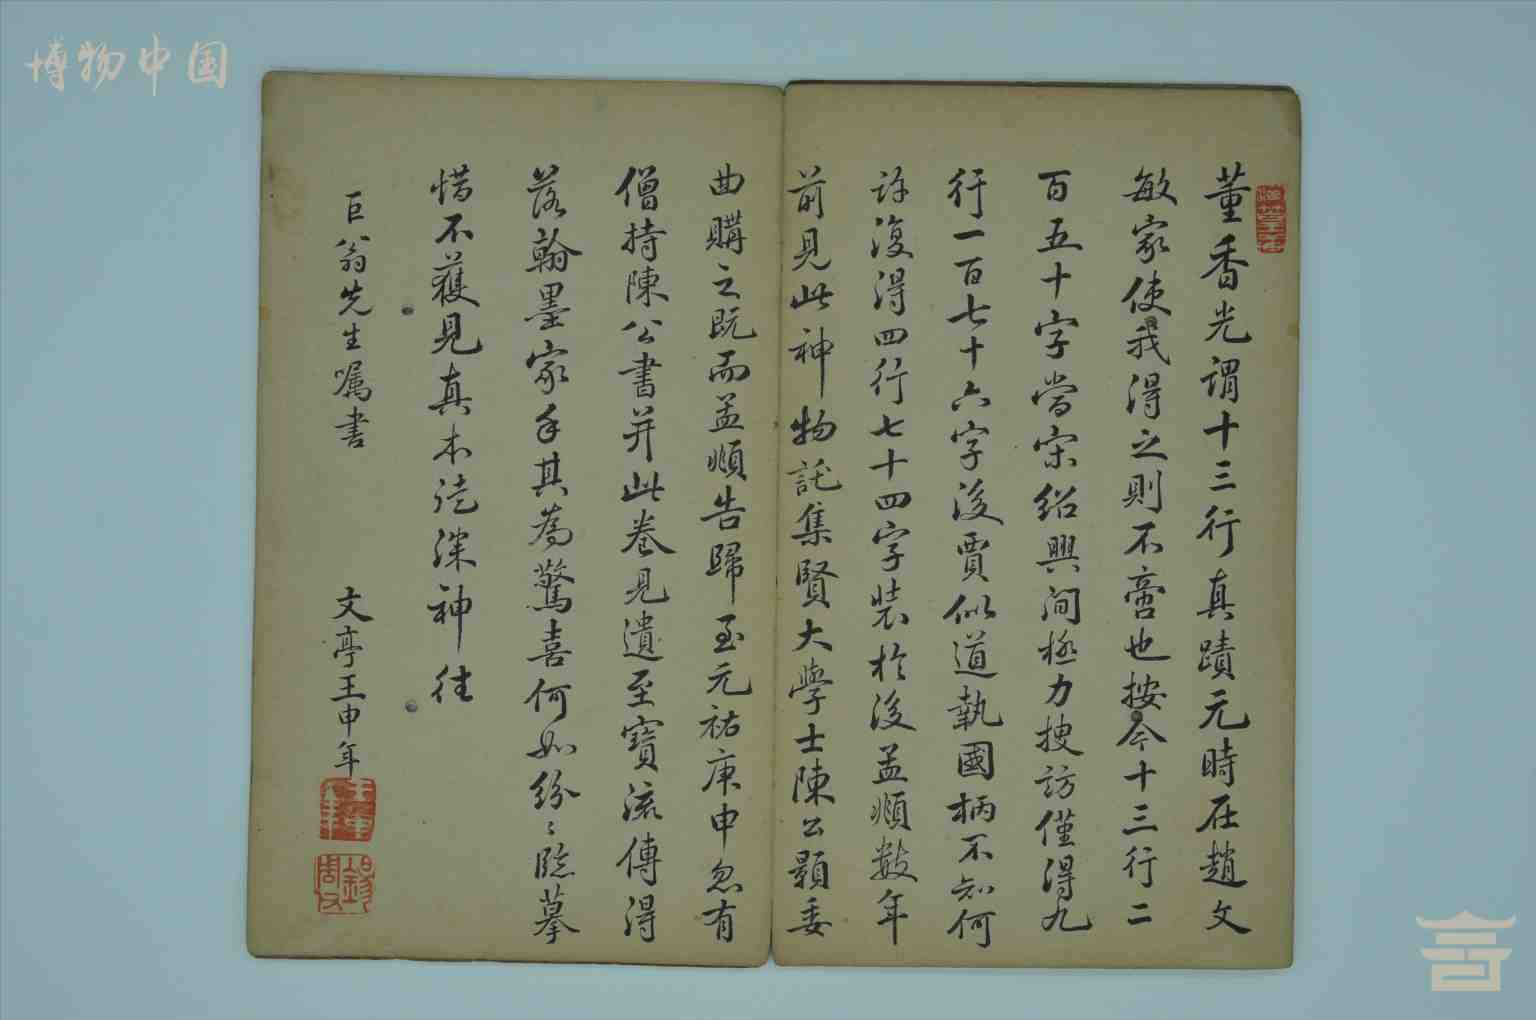 博物中国
董香光謂十三行真蹟元時在趙文
敏家使我得之則不啻也按今十三行二
百五十字當宋紹興間極力搜訪僅得九
行一百七十六字後賈似道執國柄不知何
許復得四行七十四字裝於後孟頫數年
前見此神物託集賢大學士陳公顥委
曲購之既而孟頫告歸至元祐庚申忽有
僧持陳公書并此卷見遺至寶流傳得
落翰墨家手其為驚喜何如紛〻臨摹
惜不獲見真本徒深神往
巨翁先生囑書
文亭王申年